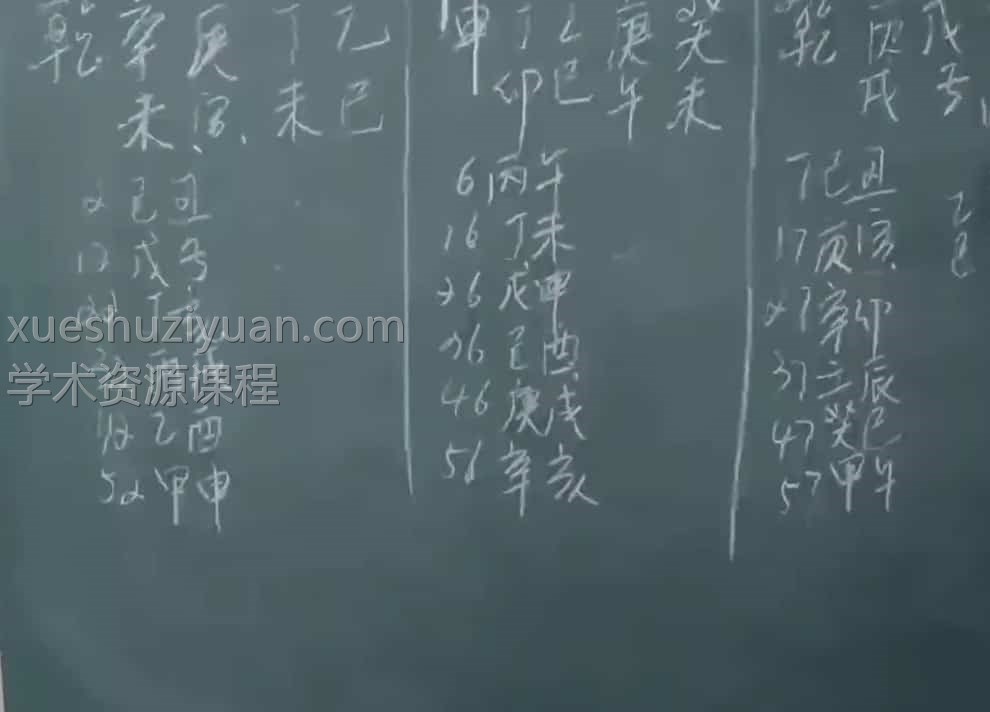 乾 辛 庚 丁 乙
未 寅 未 巳
2 己丑
12 戊子
22 丁亥
32 丙戌
42 乙酉
52 甲申
坤 丁 乙 庚 癸
卯 巳 午 未
6 丙午
16 丁未
26 戊申
36 己酉
46 庚戌
56 辛亥
乾 戊
戌 子
7 己丑
17 庚寅
27 辛卯
37 壬辰
47 癸巳
57 甲午
乙
巳
xueshuziyuan.com
学术资源课程